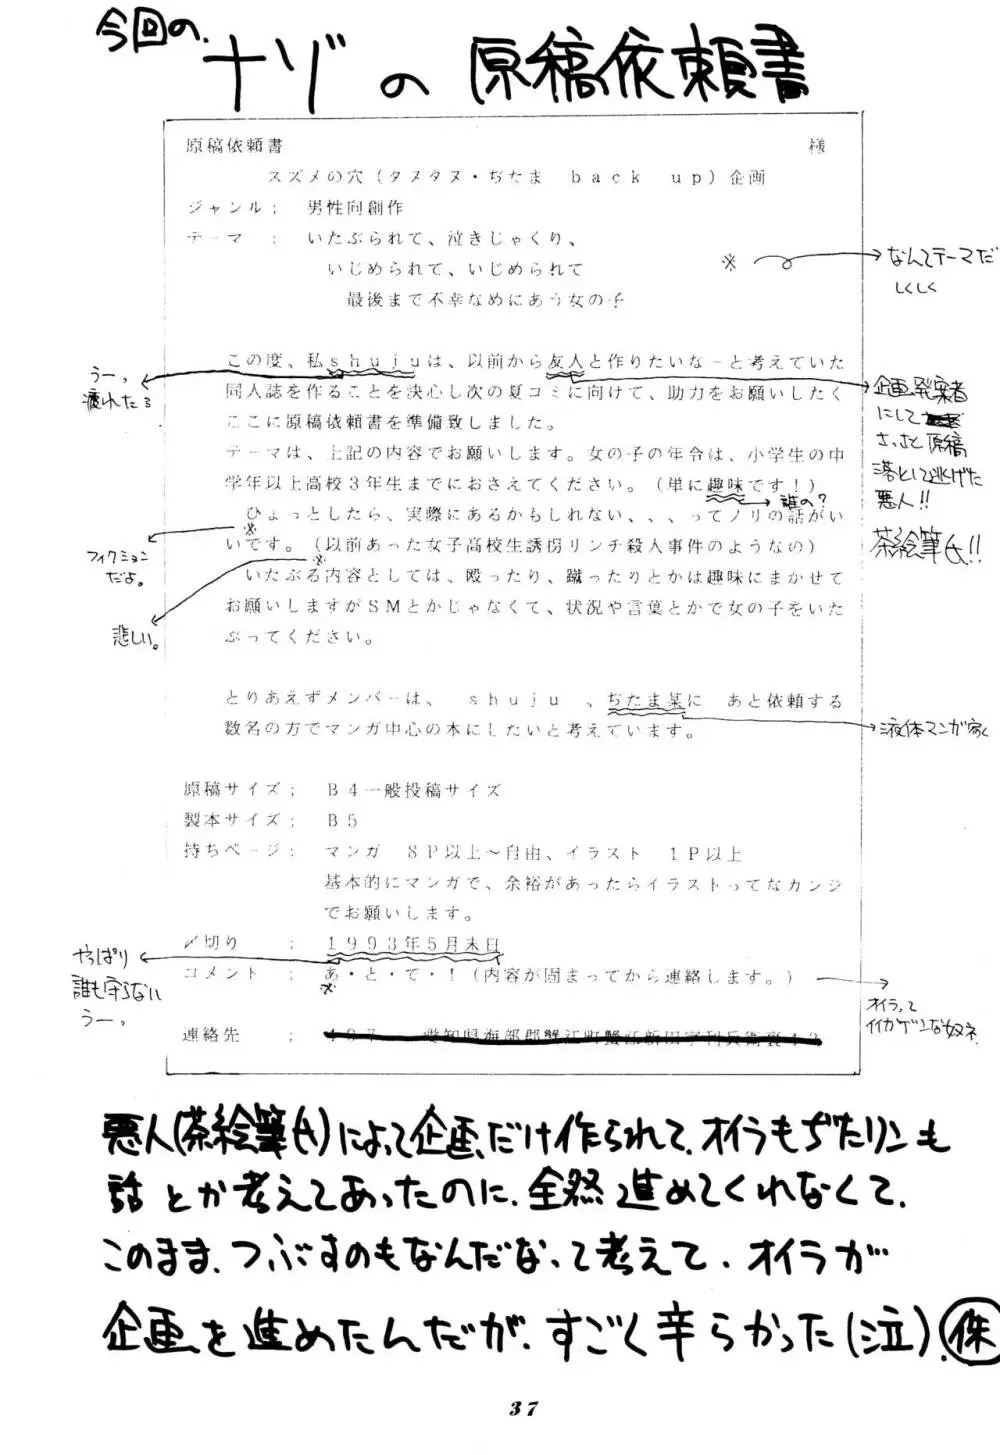 今回の
ナゾの原稿依頼書
原稿依頼書 様
スズメの穴(タヌタヌ・ぢたま back up)企画
ジャンル; 男性向創作
テーマ : いたぶられて、泣きじゃくり、
いじめられて、いじめられて
最後まで不幸なめにあう女の子
※ なんてテーマだ
しくしく
この度、私shujuは、以前から友人と作りたいなーと考えていた
同人誌を作ることを決心し次の夏コミに向けて、助力をお願いしたく
ここに原稿依頼書を準備致しました。
うーっ
疲れたよ
企画発案者
にして
さっさと原稿
落として逃げた
悪人!!
茶絵筆氏!!
テーマは、上記の内容でお願いします。女の子の年令は、小学生の中
学年以上高校3年生までにおさえてください。(単に趣味です!)
誰の?
ひょっとしたら、実際にあるかもしれない、、、ってノリの話がい
いです。(以前あった女子高校生誘拐リンチ殺人事件のようなの)
※
フィクション
だよ。
※
悲しい。
いたぶる内容としては、殴ったり、蹴ったりとかは趣味にまかせて
お願いしますがSMとかじゃなくて、状況や言葉とかで女の子をいた
ぶってください。
とりあえずメンバーは、 shuju 、ぢたま某に あと依頼する
数名の方でマンガ中心の本にしたいと考えています。
液体マンガ家
原稿サイズ; B4一般投稿サイズ
製本サイズ; B5
持ちページ; マンガ 8P以上~自由、イラスト 1P以上
基本的にマンガで、余裕があったらイラストってなカンジ
でお願いします。
〆切り : 1993年5月末日
やっぱり
誰も守らない
うーっ
コメント ; あ・と・で・!(内容が固まってから連絡します。)
※
オイラって
イイカゲンな奴ネ
連絡先 ;
悪人(茶絵筆氏)によって企画だけ作られて、オイラもぢたリンも
話とか考えてあったのに、全然進めてくれなくて、
このまま、つぶすのもなんだなって考えて、オイラが
企画を進めたんだが、すごく辛らかった(泣)。株
37